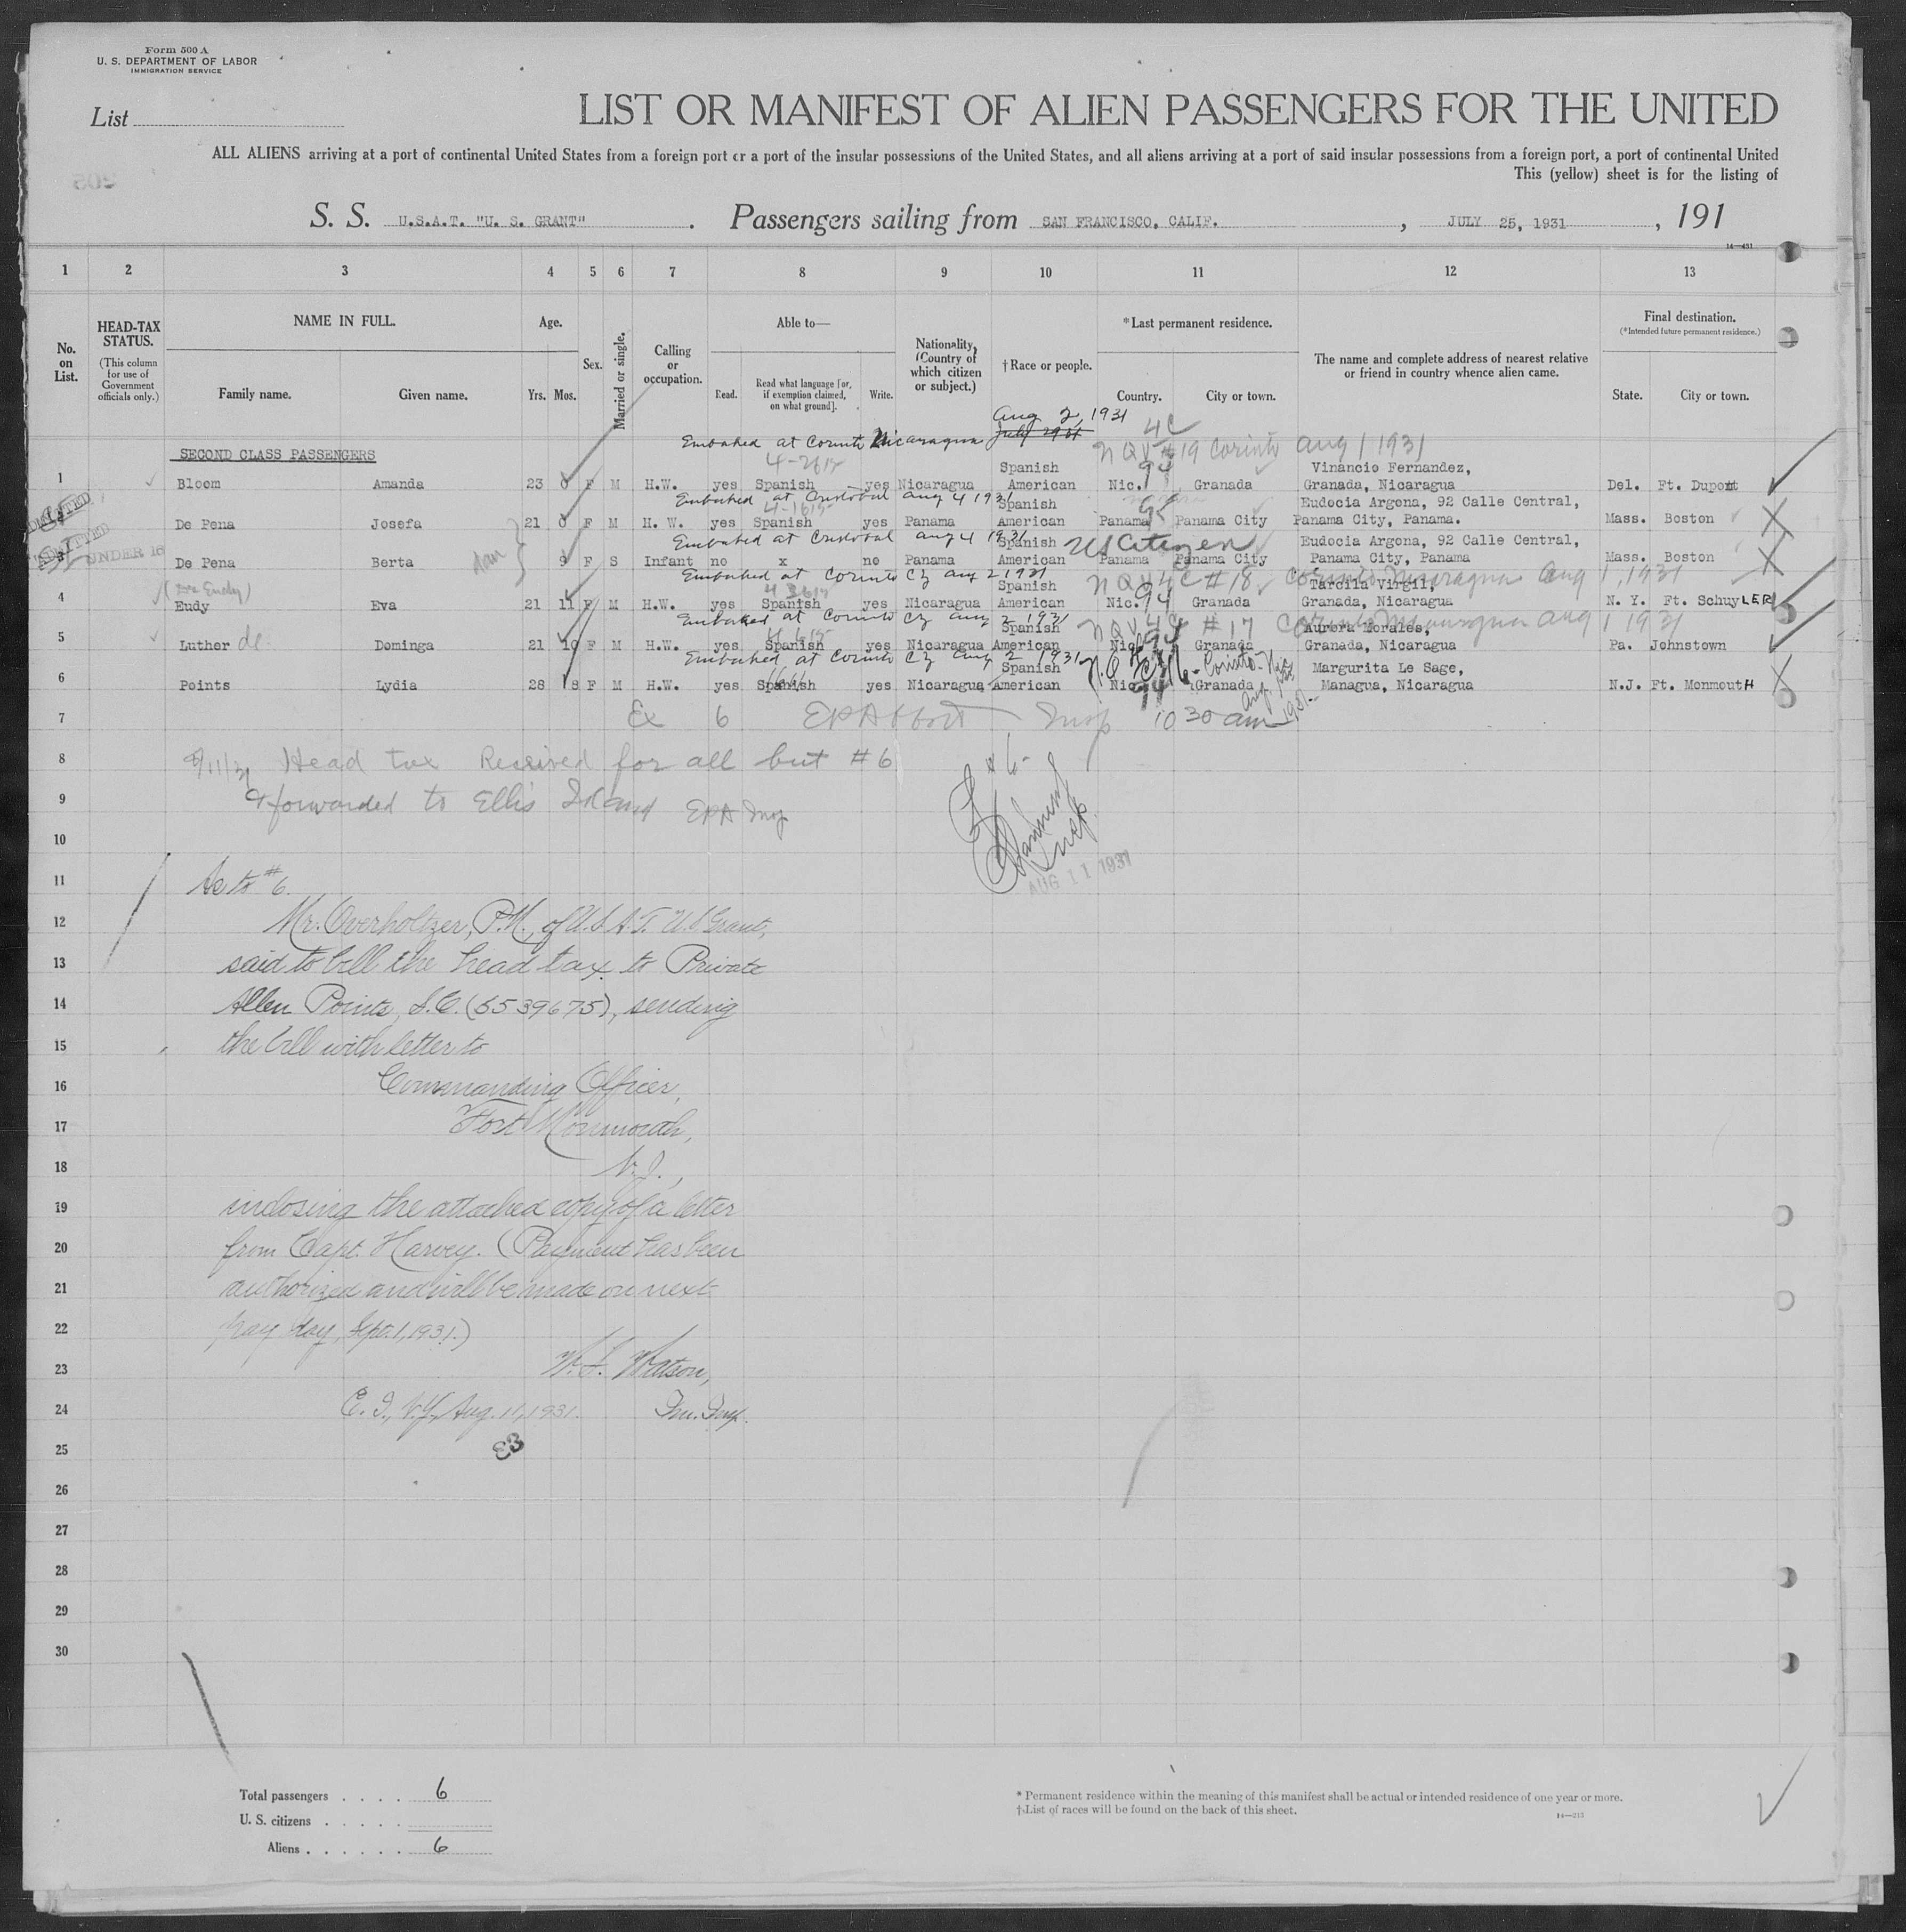 Form 500 A
U. S. DEPARTMENT OF LABOR
IMMIGRATION SERVICE
List
LIST OR MANIFEST OF ALIEN PASSENGERS FOR THE UNITED
ALL ALIENS arriving at a port of continental United States from a foreign port or a port of the insular possessions of the United States, and all aliens arriving at a port of said insular possessions from a foreign port, a port of continental United
This (yellow) sheet is for the listing of
S. S. U.S.A.T. "U. S. GRANT" . Passengers sailing from SAN FRANCISCO, CALIF. , JULY 25, 1931 , 191
14—431
1 2 3 4 5 6 7 8 9 10 11 12 13
No. on List.
HEAD-TAX STATUS.
(This column for use of Government officials only.)
NAME IN FULL.
Family name. Given name.
Age.
Yrs. Mos.
Sex.
Married or single.
Calling or occupation.
Able to—
Read. Read what language [or, if exemption claimed, on what ground]. Write.
Nationality. (Country of which citizen or subject.)
†Race or people.
*Last permanent residence.
Country. City or town.
The name and complete address of nearest relative or friend in country whence alien came.
Final destination.
(*Intended future permanent residence.)
State. City or town.
Aug 2, 1931
Embarked at Corinto Nicaragua July 29 31
4C
NQV #19 Corinto Aug 1 1931
SECOND CLASS PASSENGERS
4-2615
1 Bloom Amanda 23 0 F M H.W. yes Spanish yes Nicaragua Spanish American Nic. 94 Granada Vinancio Fernandez, Granada, Nicaragua Del. Ft. Dupont
Embarked at Cristobal Aug 4 1931
4-1615
ADMITTED
De Pena Josefa 21 0 F M H. W. yes Spanish yes Panama Spanish American Panama 95 Panama City Eudocia Argona, 92 Calle Central, Panama City, Panama. Mass. Boston
Embarked at Cristobal Aug 4 1931
US Citizen
ADMITTED
UNDER 16
3 De Pena Berta 9 F S Infant no x no Panama Spanish American Panama Panama City Eudocia Argona, 92 Calle Central, Panama City, Panama Mass. Boston
Embarked at Corinto CZ Aug 2 1931
NQV 4C #18 Corinto Nicaragua Aug 1, 1931
4 Eudy Eva 21 11 F M H.W. yes Spanish yes Nicaragua Spanish American Nic. 94 Granada Tarcila Virgil, Granada, Nicaragua N. Y. Ft. SchuyLER
Embarked at Corinto CZ Aug 2 1931
NQV 4C #17 Corinto Nicaragua Aug 1 1931
5 Luther de Dominga 21 10 F M H.W. yes Spanish yes Nicaragua Spanish American Nic. 94 Granada Aurora Morales, Granada, Nicaragua Pa. Johnstown
Embarked at Corinto CZ Aug 2 1931
6 Points Lydia 28 8 F M H.W. yes Spanish yes Nicaragua Spanish American Nic. 94 Granada Margurita Le Sage, Managua, Nicaragua N.J. Ft. MonmoutH
7 Ex 6 EPAbbott Insp 10 30 am
8 8/11/31 Head tax Received for all but #6
9 & forwarded to Ellis Island EPA Insp
#6-
Insp.
AUG 11 1931
10
11 As to #6.
12 Mr. Overholtzer, P.M., of U.S.A.T. U.S. Grant,
13 said to bill the head tax to Private
14 Allen Points, S.C. (6539675), sending
15 the bill with letter to
16 Commanding Officer,
17 Fort Monmouth,
18 N.J.,
19 inclosing the attached copy of a letter
20 from Capt. Harvey. (Payment has been
21 authorized and will be made on next
22 pay day, Sept. 1, 1931.)
23 W. F. Watson,
24 E. I., N.Y., Aug. 11, 1931. Imm. Insp.
25
26
27
28
29
30
Total passengers . . . . 6
U. S. citizens . . . . .
Aliens . . . . . . 6
* Permanent residence within the meaning of this manifest shall be actual or intended residence of one year or more.
† List of races will be found on the back of this sheet.
14—213